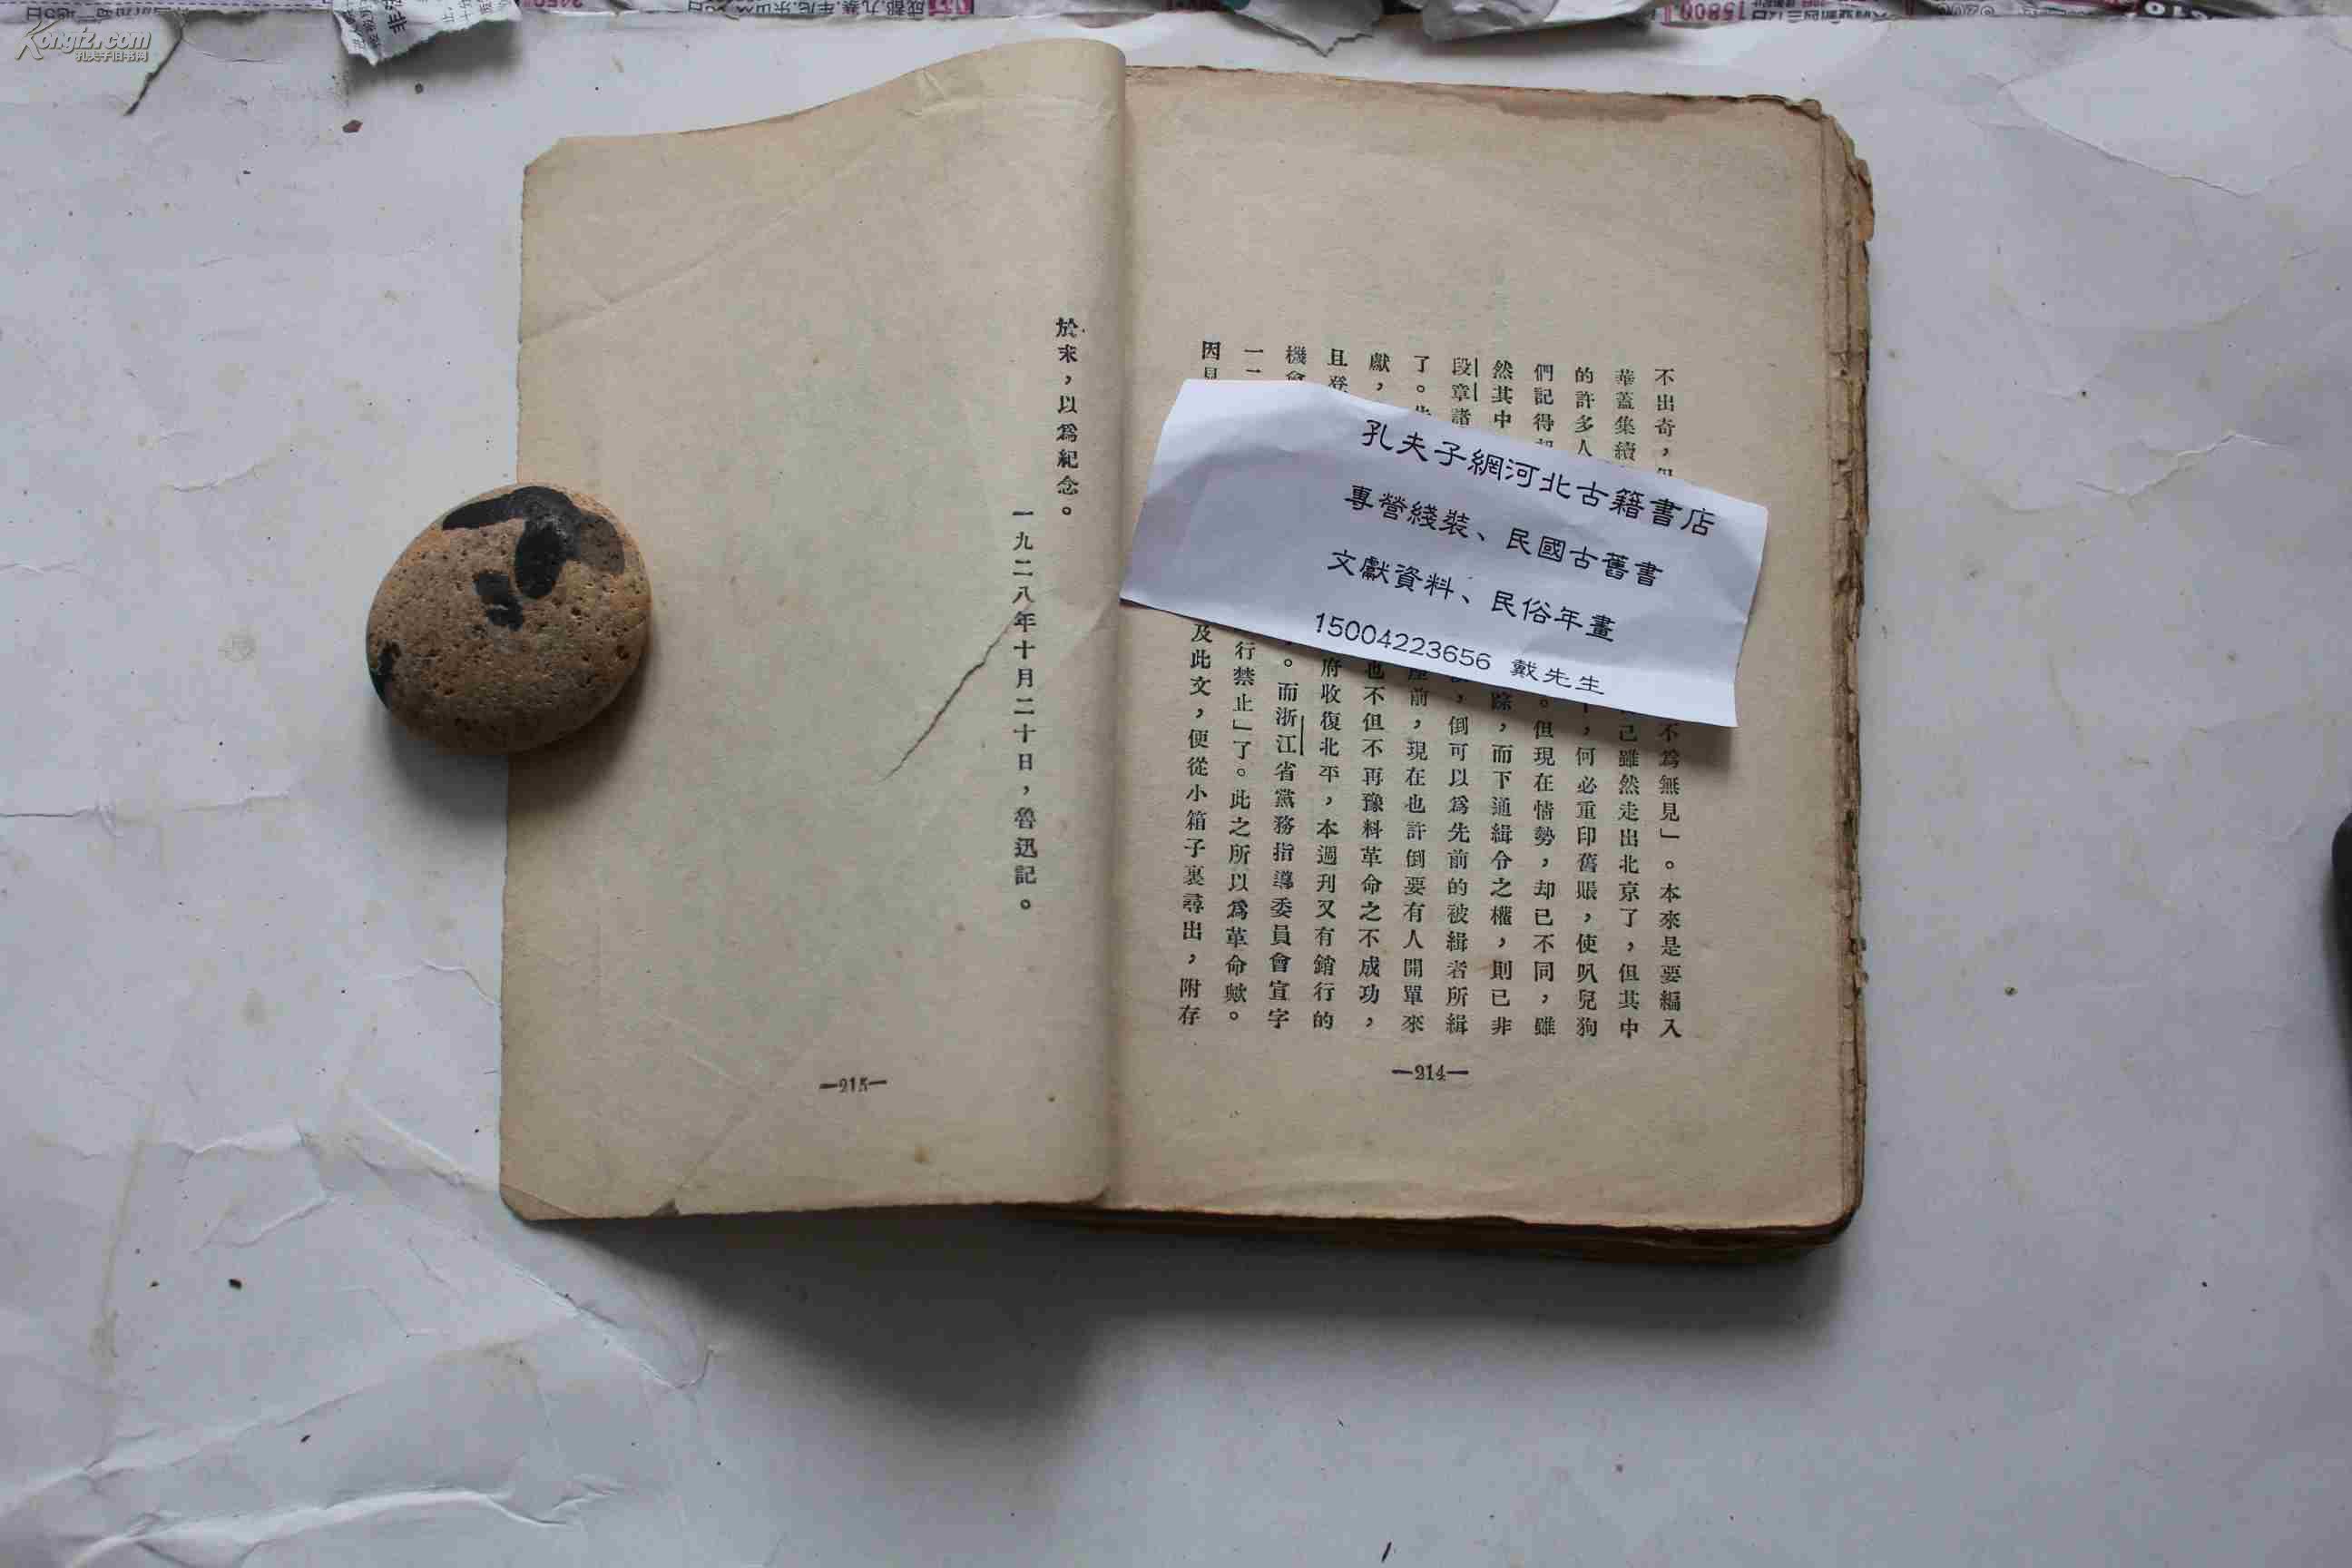 Kongfz.com
孔夫子旧书网
不出奇，
不為無見」。本來是要編入
華蓋集續
己雖然走出北京了，但其中
的許多人
，何必重印舊賬，使叭兒狗
們記得
。但現在情勢，却已不同，雖
然其中
踪，而下通緝令之權，則已非
段章諸
，倒可以爲先前的被緝者所緝
了。
座前，現在也許倒要有人開單來
獻，
也不但不再豫料革命之不成功，
且登
府收復北平，本週刊又有銷行的
機會
。而浙江省黨務指導委員會宣字
一
行禁止」了。此之所以爲革命歟。
因見
及此文，便從小箱子裏尋出，附存
—214—
孔夫子網河北古籍書店
專營綫裝、民國古舊書
文獻資料、民俗年畫
15004223656 戴先生
於末，以爲紀念。
一九二八年十月二十日，魯迅記。
—215—